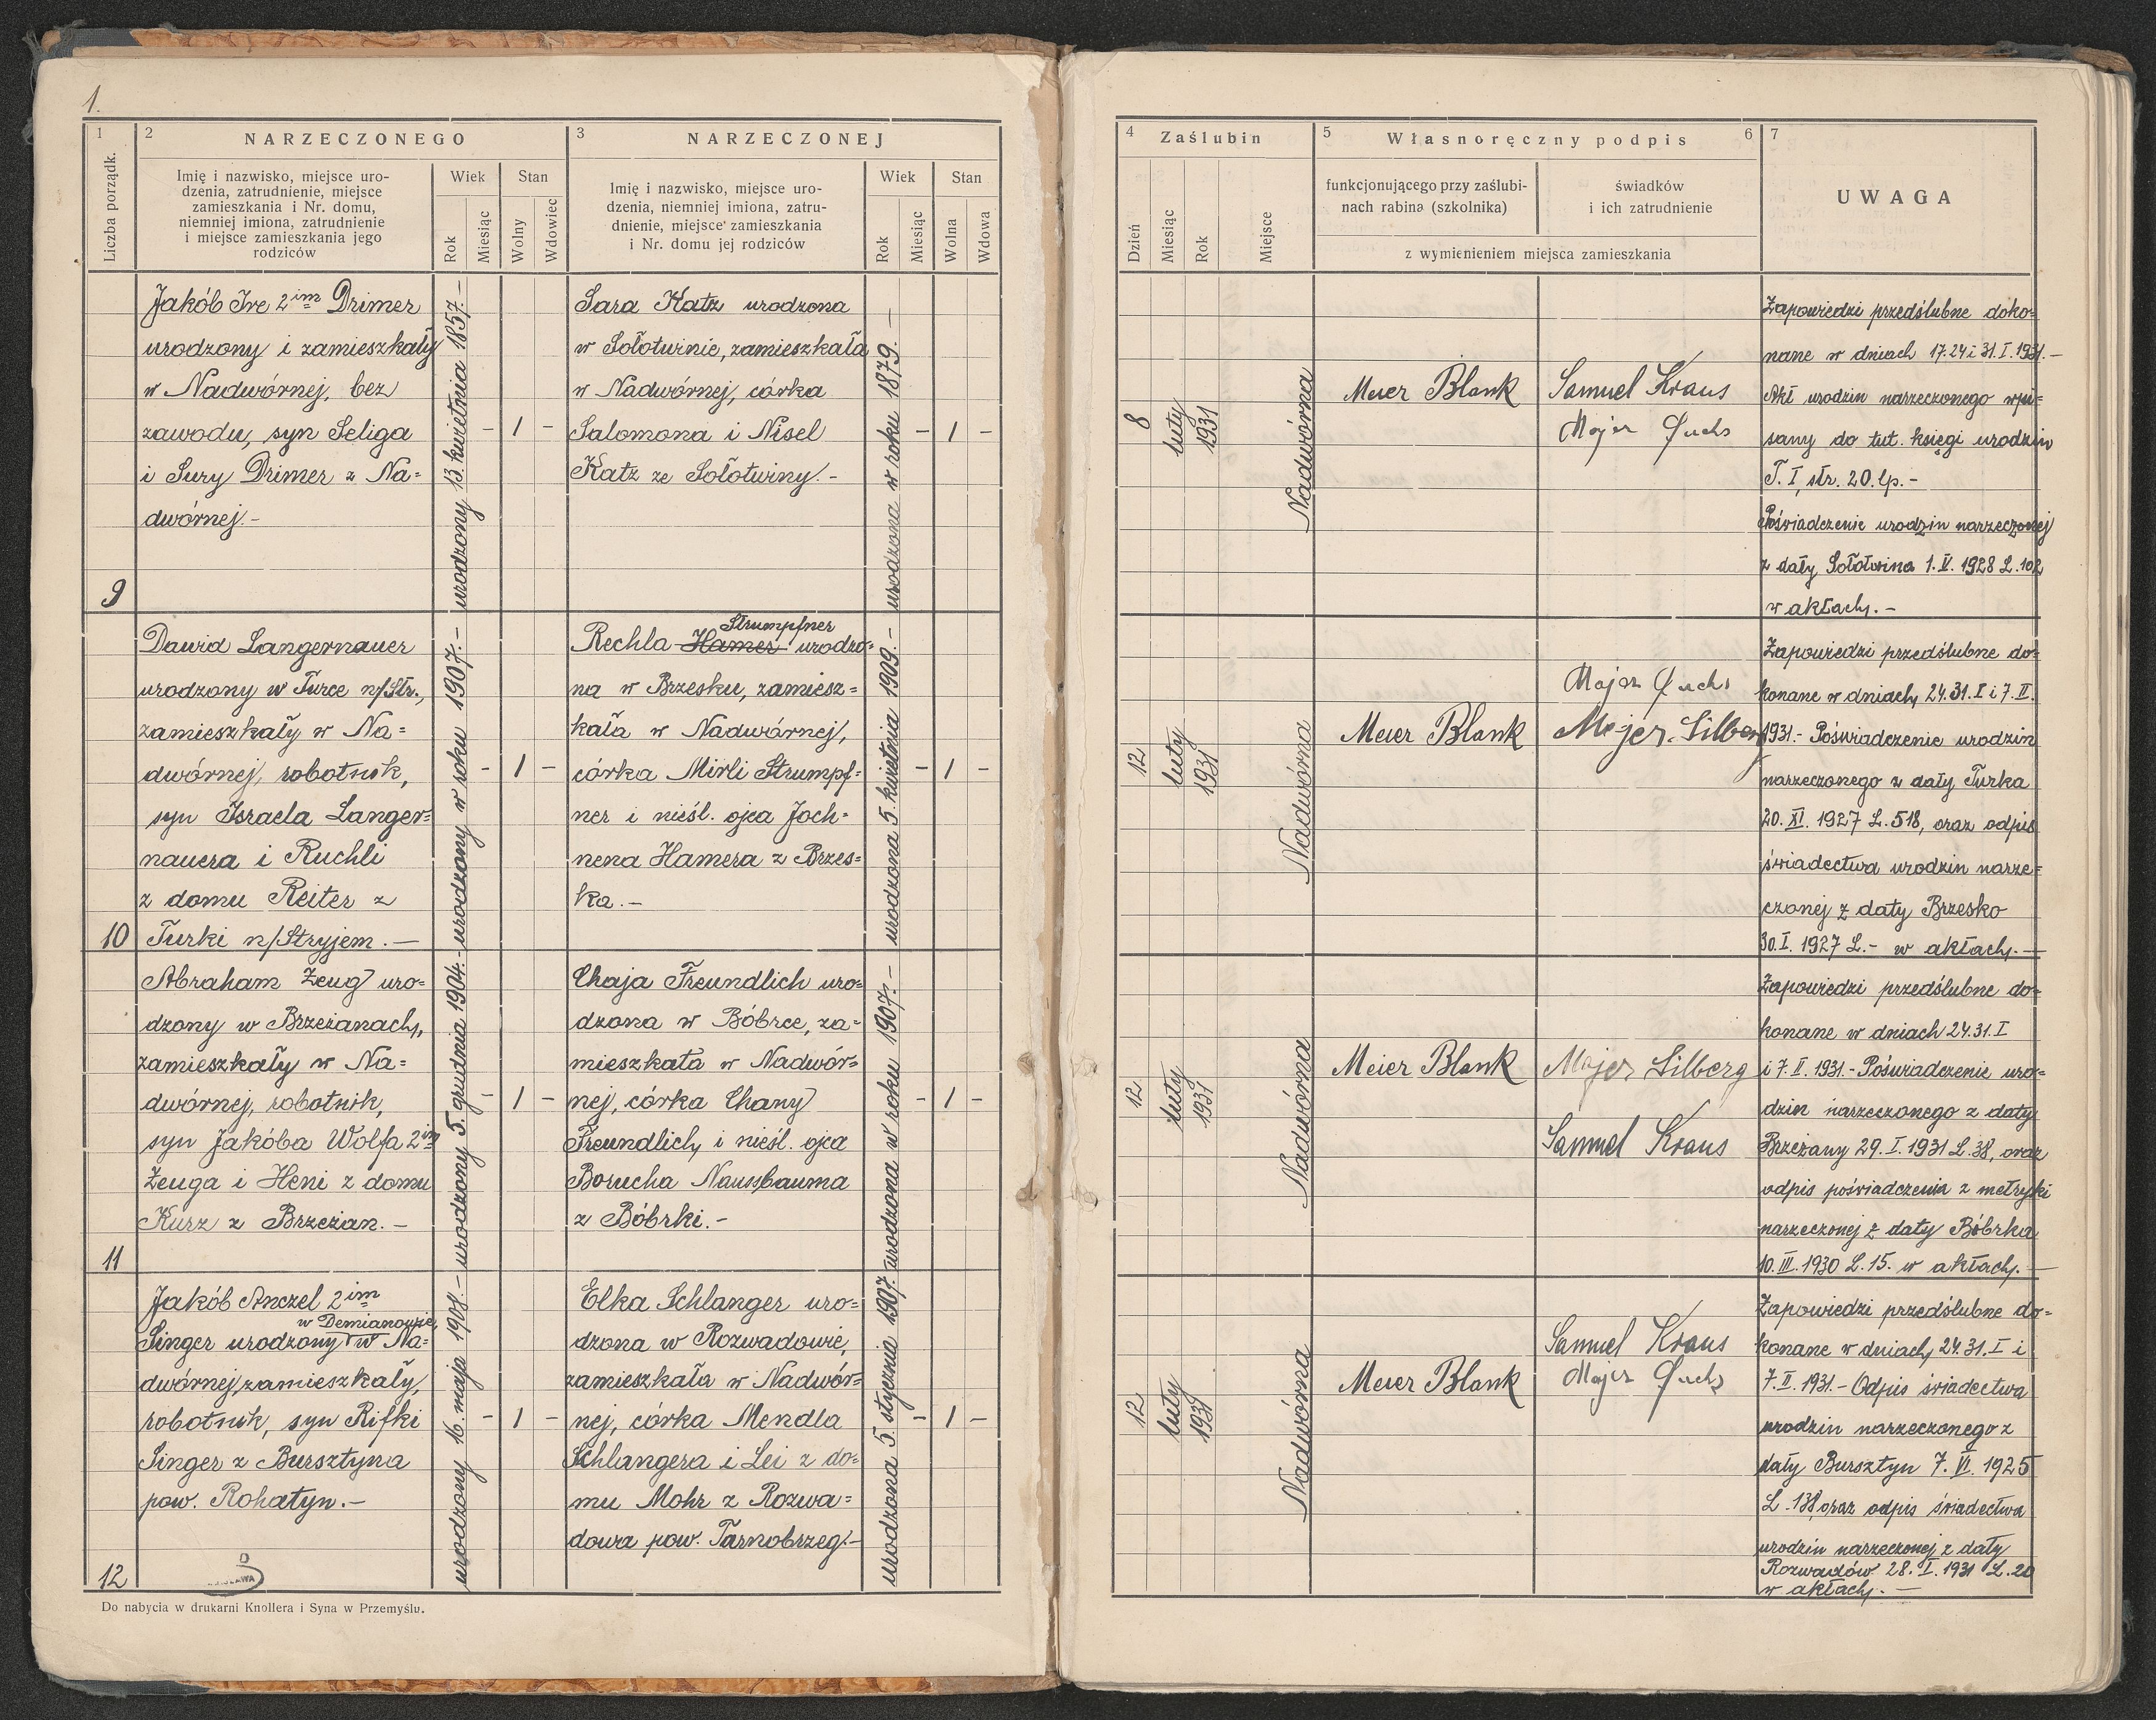 1.
1
2
NARZECZONEGO
3
NARZECZONEJ
Liczba porządk.
Imię i nazwisko, miejsce uro-
dzenia, zatrudnienie, miejsce
zamieszkania i Nr. domu,
niemniej imiona, zatrudnienie
i miejsce zamieszkania jego
rodziców
Wiek
Stan
Rok
Miesiąc
Wolny
Wdowiec
Imię i nazwisko, miejsce uro-
dzenia, niemniej imiona, zatru-
dnienie, miejsce zamieszkania
i Nr. domu jej rodziców
Wiek
Stan
Rok
Miesiąc
Wolna
Wdowa
9
Jakób Ire 2im Drimer
urodzony i zamieszkały
w Nadwórnej, bez
zawodu, syn Seliga
i Sury Drimer z Na=
dwórnej.-
urodzony 13. kwietnia 1857.-
- 1 -
Sara Katz urodzona
w Sołotwinie, zamieszkała
w Nadwórnej, córka
Salomona i Nisel
Katz ze Sołotwiny.-
urodzona w roku 1879.-
- 1 -
10
Dawid Langernauer
urodzony w Turce n/Str.,
zamieszkały w Na=
dwórnej, robotnik,
syn Israela Langer=
nauera i Ruchli
z domu Reiter z
Turki n/Stryjem.-
urodzony w roku 1907.-
- 1 -
Strumpfner
Rechla Hamer urodzo=
na w Brzesku, zamiesz=
kała w Nadwórnej,
córka Mirli Strumpf=
ner i nieśl. ojca Joch=
nena Hamera z Brzes=
ka.-
urodzona 5. kwietnia 1909.-
- 1 -
11
Abraham Zeug uro=
dzony w Brzeżanach,
zamieszkały w Na=
dwórnej, robotnik,
syn Jakóba Wolfa 2im
Zeuga i Heni z domu
Kurz z Brzeżan.-
urodzony 5. grudnia 1904.-
- 1 -
Chaja Freundlich uro=
dzona w Bóbrce, za=
mieszkała w Nadwór=
nej, córka Chany
Freundlich i nieśl. ojca
Borucha Naussbauma
z Bóbrki.-
urodzona w roku 1907.-
- 1 -
12
Jakób Anczel 2im
w Demianowie,
Singer urodzony w Na=
dwórnej, zamieszkały,
robotnik, syn Rifki
Singer z Bursztyna
pow. Rohatyn.-
urodzony 16. maja 1908.-
- 1 -
Elka Schlanger uro=
dzona w Rozwadowie,
zamieszkała w Nadwór=
nej, córka Mendla
Schlangera i Lei z do=
mu Mohr z Rozwa=
dowa pow. Tarnobrzeg.-
urodzona 5. stycznia 1907.
- 1 -
Do nabycia w drukarni Knollera i Syna w Przemyślu.
4
Zaślubin
5
Własnoręczny podpis
6
7
UWAGA
Dzień
Miesiąc
Rok
Miejsce
funkcjonującego przy zaślubi-
nach rabina (szkolnika)
świadków
i ich zatrudnienie
z wymienieniem miejsca zamieszkania
8
luty
1931
Nadwórna
Meier Blank
Samuel Kraus
Majer Fuchs
Zapowiedzi przedślubne doko=
nane w dniach 17.24 i 31.I.1931.-
Akt urodzin narzeczonego wpi=
sany do tut. księgi urodzin
T. I, str. 20. lp.-
Poświadczenie urodzin narzeczonej
z daty Sołotwina 1. V. 1928 L. 102
w aktach.-
12
luty
1931
Nadwórna
Meier Blank
Majer Fuchs
Mejer Silberg
Zapowiedzi przedślubne do=
konane w dniach 24.31.I i 7.II.
1931.- Poświadczenie urodzin
narzeczonego z daty Turka
20. XI. 1927 L. 518, oraz odpis
świadectwa urodzin narze=
czonej z daty Brzesko
30.I. 1927 L.- w aktach.-
12
luty
1931
Nadwórna
Meier Blank
Majer Silberg
Samuel Kraus
Zapowiedzi przedślubne do=
konane w dniach 24.31.I
i 7. II. 1931.- Poświadczenie uro=
dzin narzeczonego z daty
Brzeżany 29. I. 1931 L. 38, oraz
odpis poświadczenia z metryki
narzeczonej z daty Bóbrka
10. III. 1930 L. 15. w aktach.-
12
luty
1931
Nadwórna
Meier Blank
Samuel Kraus
Majer Fuchs
Zapowiedzi przedślubne do=
konane w dniach 24.31.I i
7. II. 1931.- Odpis świadectwa
urodzin narzeczonego z
daty Bursztyn 7. VI. 1925
L. 138, oraz odpis świadectwa
urodzin narzeczonej z daty
Rozwadów 28. I. 1931 L. 20
w aktach.-